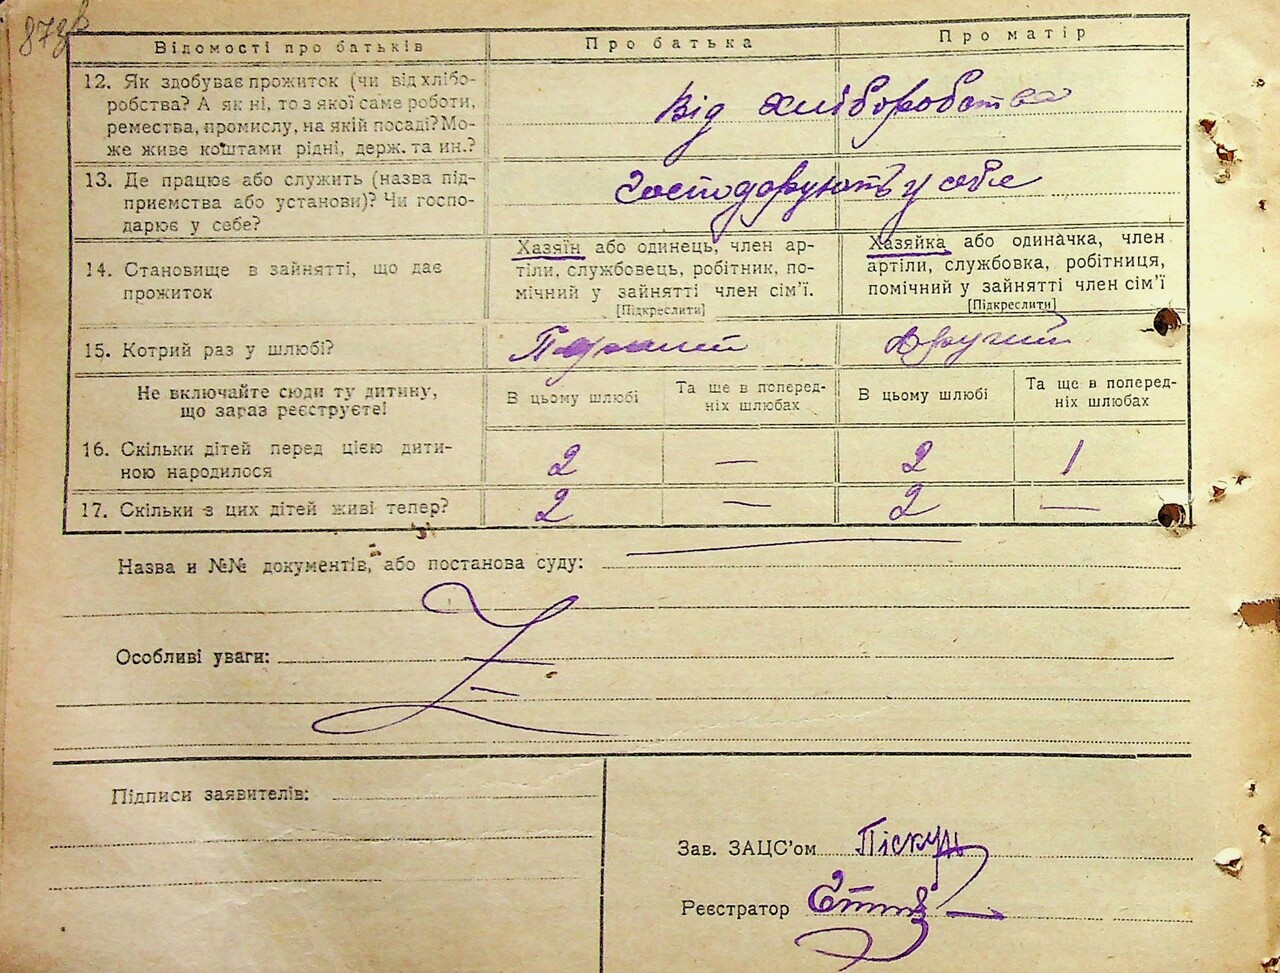 87зв
Відомості про батьків Про батька Про матір
12. Як здобуває прожиток (чи від хлібо-
робства? А як ні, то з якої саме роботи,
ремества, промислу, на якій посаді? Мо-
же живе коштами рідні, держ. та ин.?
Від хліборобства
13. Де працює або служить (назва під-
приємства або установи)? Чи госпо-
дарює у себе?
Господарують у себе
14. Становище в зайнятті, що дає
прожиток
Хазяїн або одинець, член ар-
тіли, службовець, робітник, по-
мічний у зайнятті член сім'ї.
[Підкреслити]
Хазяйка або одиначка, член
артіли, службовка, робітниця,
помічний у зайнятті член сім'ї
[Підкреслити]
15. Котрий раз у шлюбі? Перший Другий
Не включайте сюди ту дитину,
що зараз реєструєте!
В цьому шлюбі
Та ще в поперед-
ніх шлюбах
В цьому шлюбі
Та ще в поперед-
ніх шлюбах
16. Скільки дітей перед цією дити-
ною народилося
2 — 2 1
17. Скільки з цих дітей живі тепер? 2 — 2 —
Назва и №№ документів, або постанова суду:
Особливі уваги:
Підписи заявителів:
Зав. ЗАЦС'ом Піскун
Реєстратор